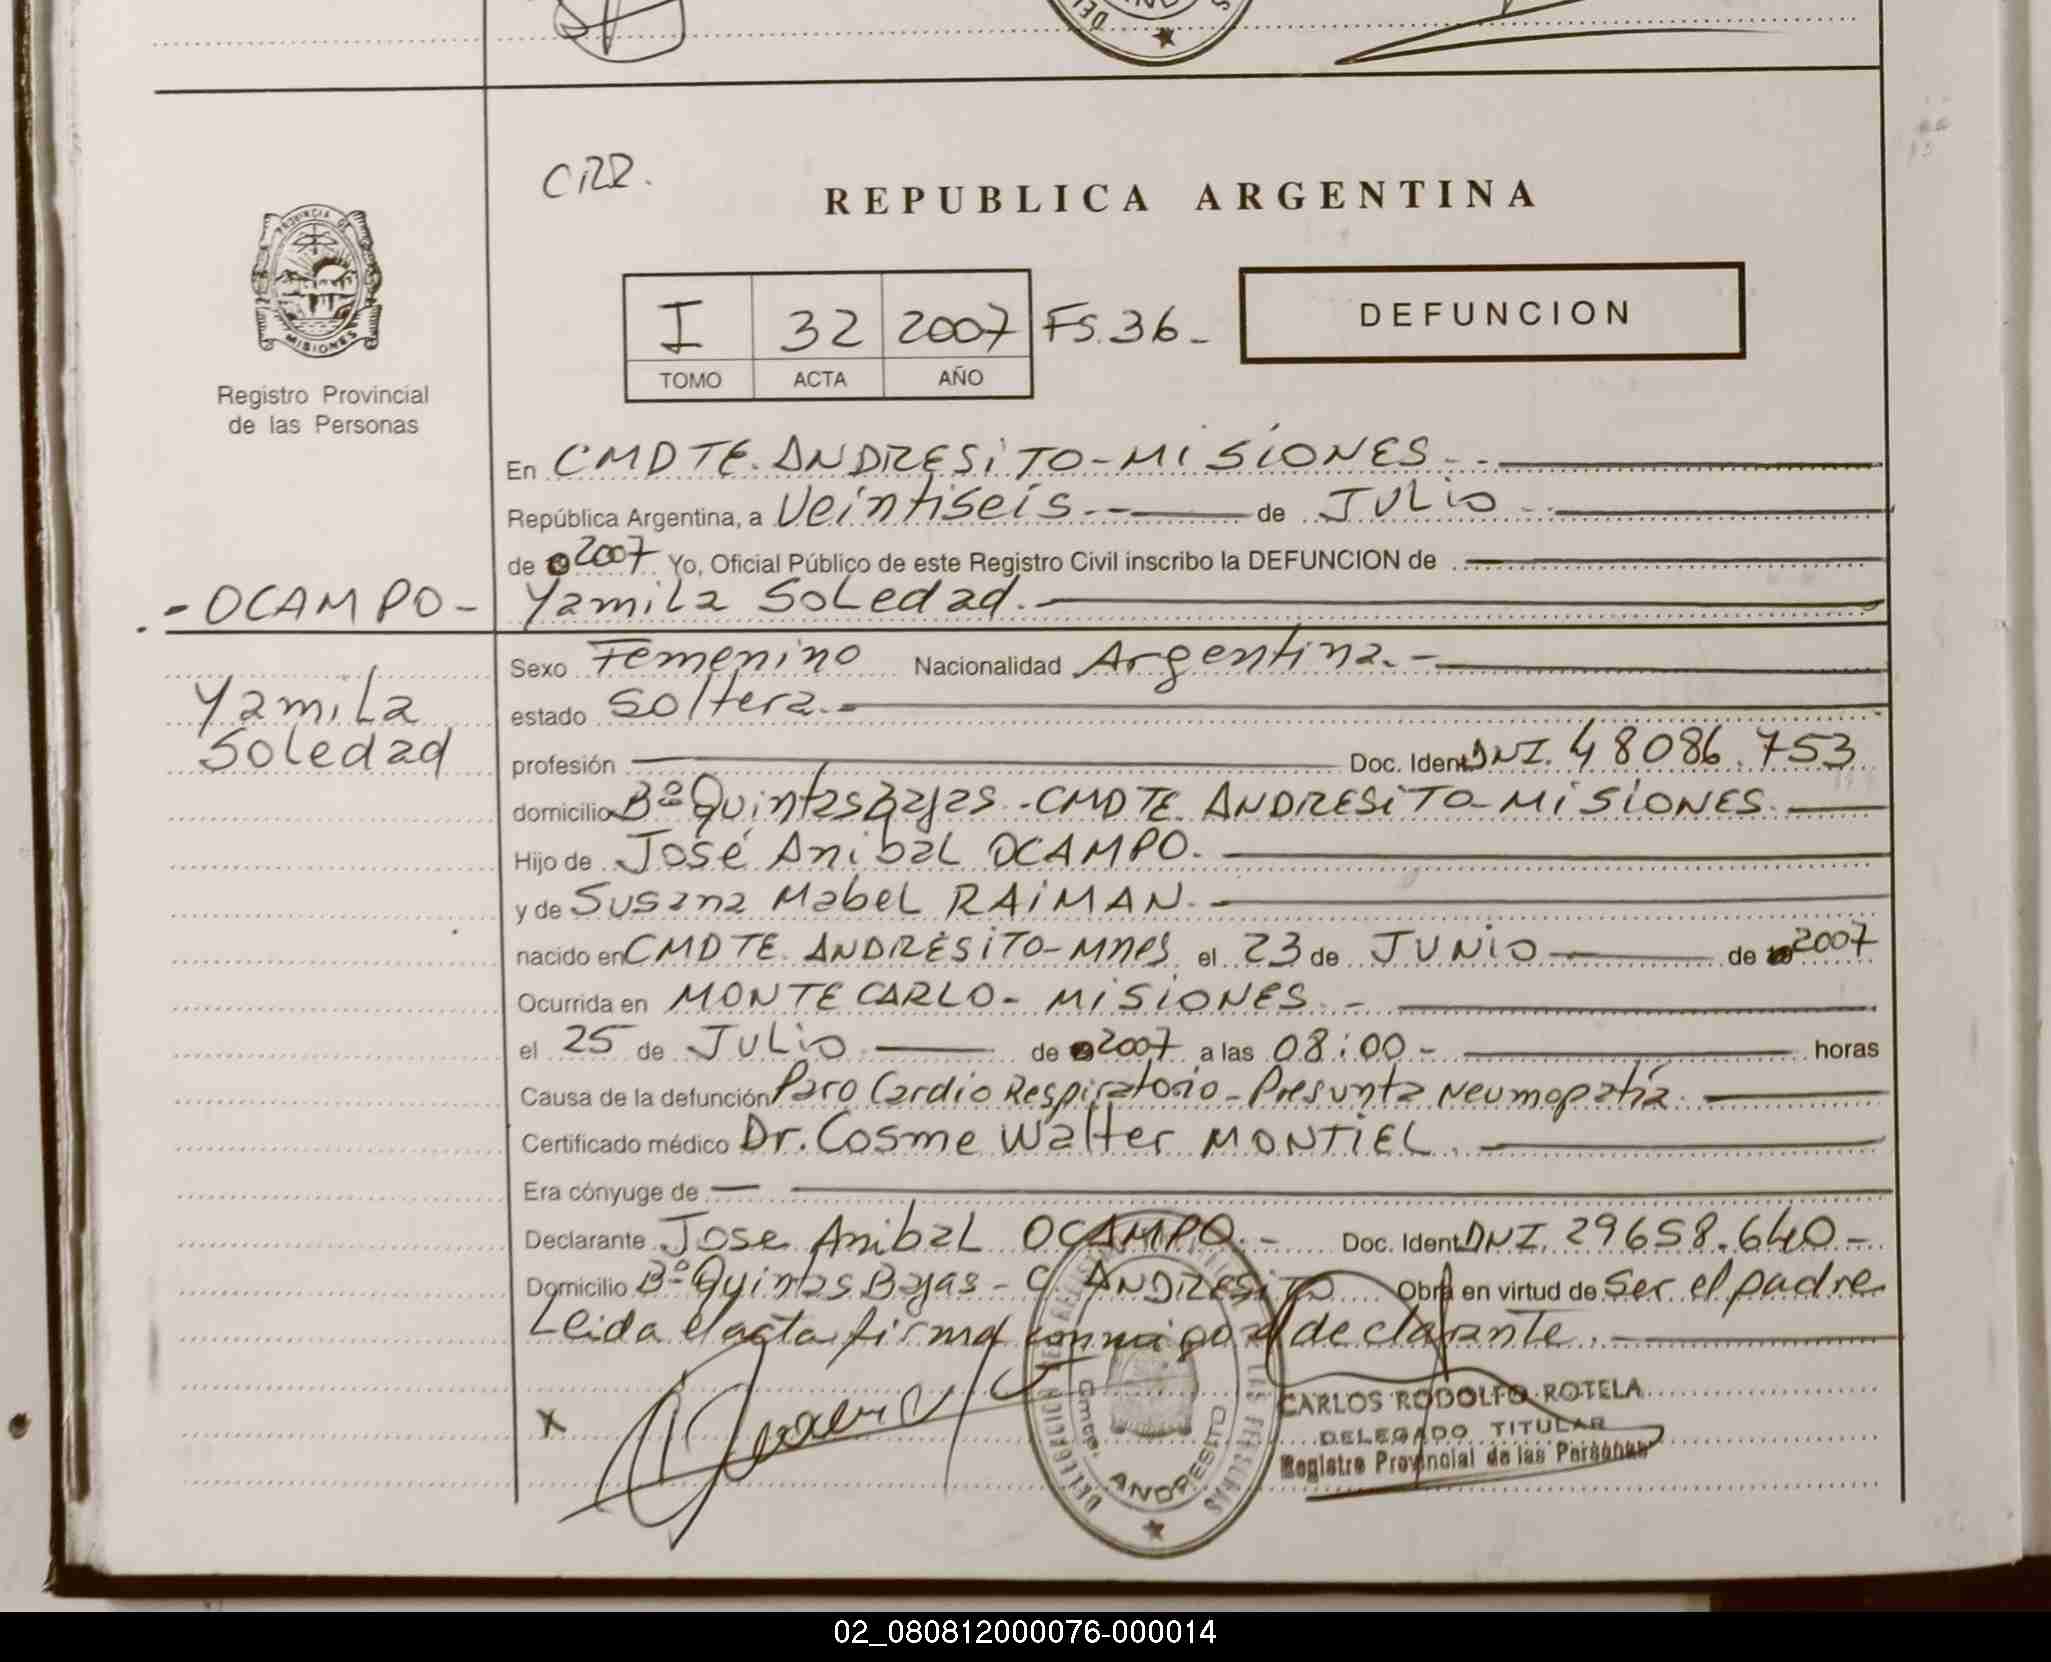 CiRR.
REPUBLICA ARGENTINA
PROVINCIA DE
MISIONES
Registro Provincial
de las Personas
I 32 2007 Fs.36-
TOMO ACTA AÑO
DEFUNCION
En CMDTE. ANDRESiTO-MISIONES.-
República Argentina, a Veintiseis.-- de JULio
de 2007 Yo, Oficial Público de este Registro Civil inscribo la DEFUNCION de
-OCAMPO- Yamila Soledad.
Sexo Femenino Nacionalidad Argentina.-
Yamila
Soledad
estado Soltera.-
profesión Doc. Ident. DNI. 48086.753
domicilio Bº Quintas Bajas -CMDTE. ANDRESiTO-MiSiONES.
Hijo de José Anibal OCAMPO.
y de Susana Mabel RAiMAN.-
nacido en CMDTE. ANDRESiTO-Mnes el 23 de JUNio de 2007
Ocurrida en MONTECARLO- MiSiONES.-
el 25 de JULio de 2007 a las 08:00- horas
Causa de la defunción Paro Cardio Respiratorio-Presunta Neumopatia
Certificado médico Dr. Cosme Walter MONTiEL.
Era cónyuge de —
Declarante Jose Anibal OCAMPO.- Doc. Ident. DNI. 29658.640-
Domicilio Bº Quintas Bajas- C. ANDRESiTO Obra en virtud de Ser el padre
Leida el acta firma conmigo el declarante.
X
Cmte. ANDRESITO
CARLOS RODOLFO ROTELA
DELEGADO TITULAR
Registro Provincial de las Personas
02_080812000076-000014